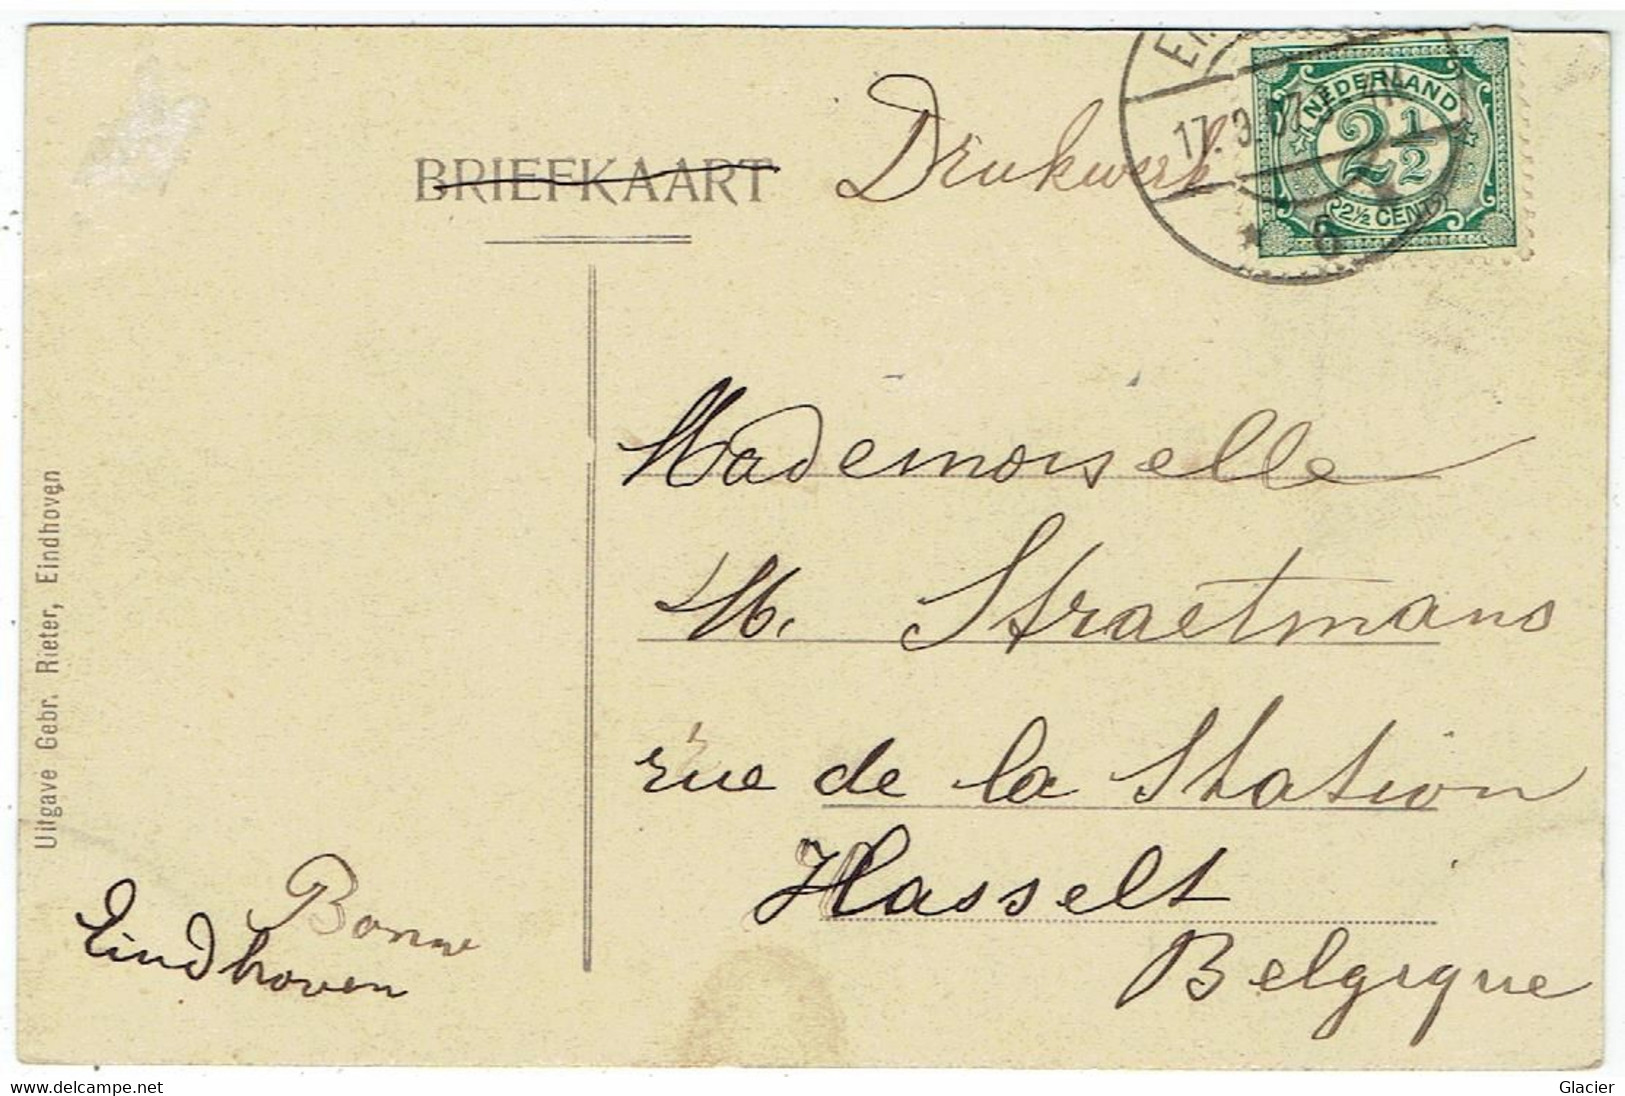 BRIEFKAART Drukwerk
NEDERLAND
2 1/2
2½ CENT
17. 9. 07
Mademoiselle
M. Straetmans
rue de la Station
Hasselt
Belgique
Bonne
Eindhoven
Uitgave Gebr. Rieter, Eindhoven
www.delcampe.net
Glacier